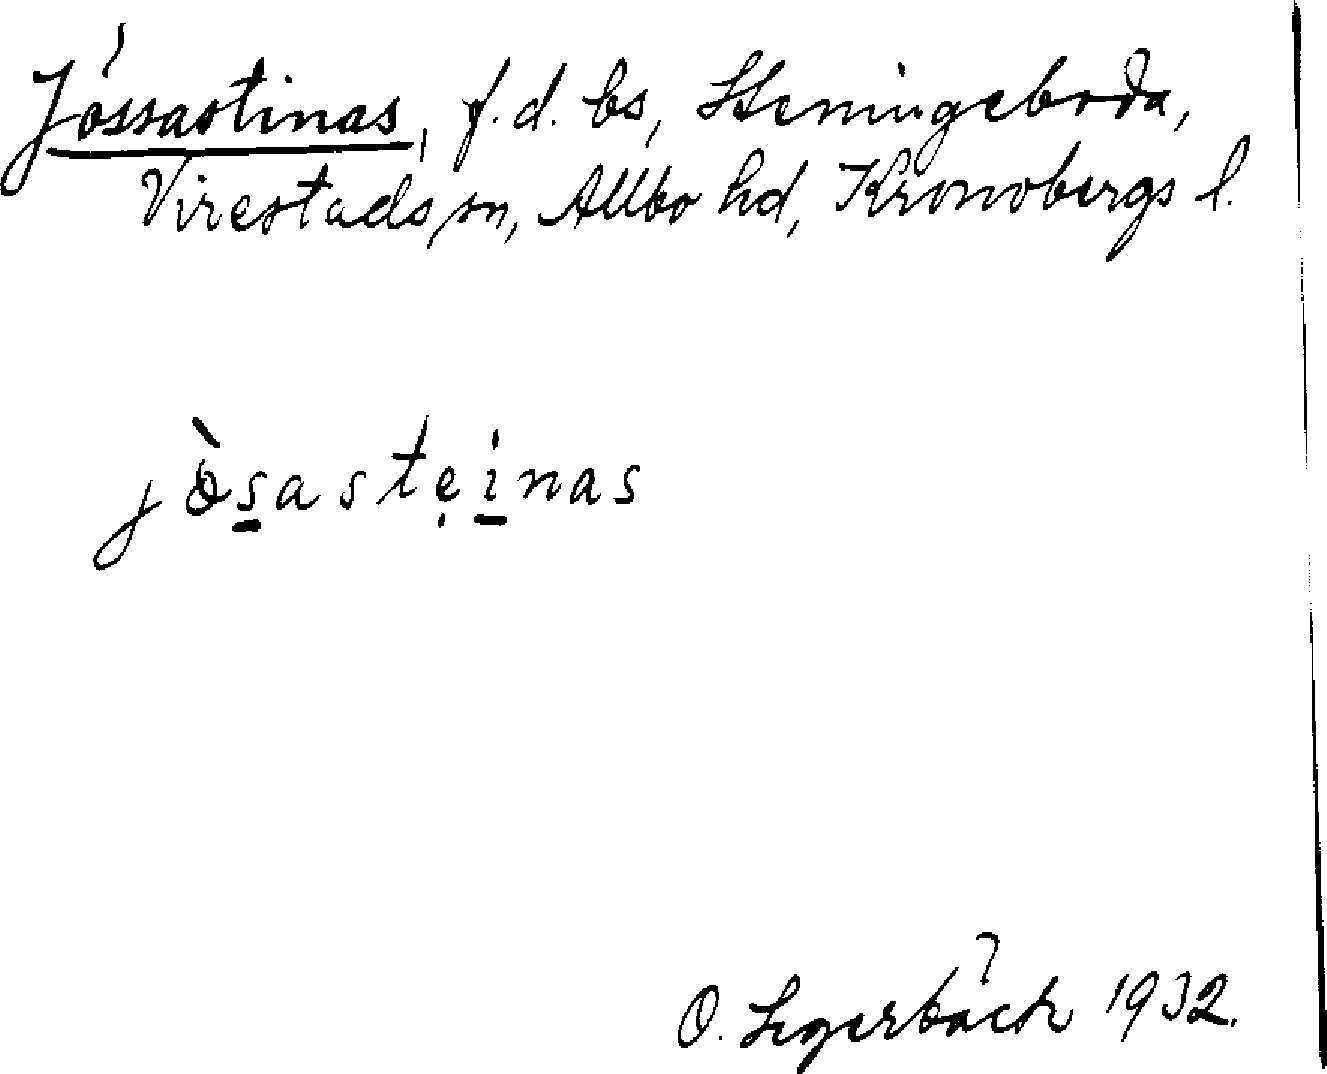 Jössastinas, f.d. bs, Steningeboda,
Virestads sn, Allbo hd, Kronobergs l.
jòsasteinas
O. 1932.